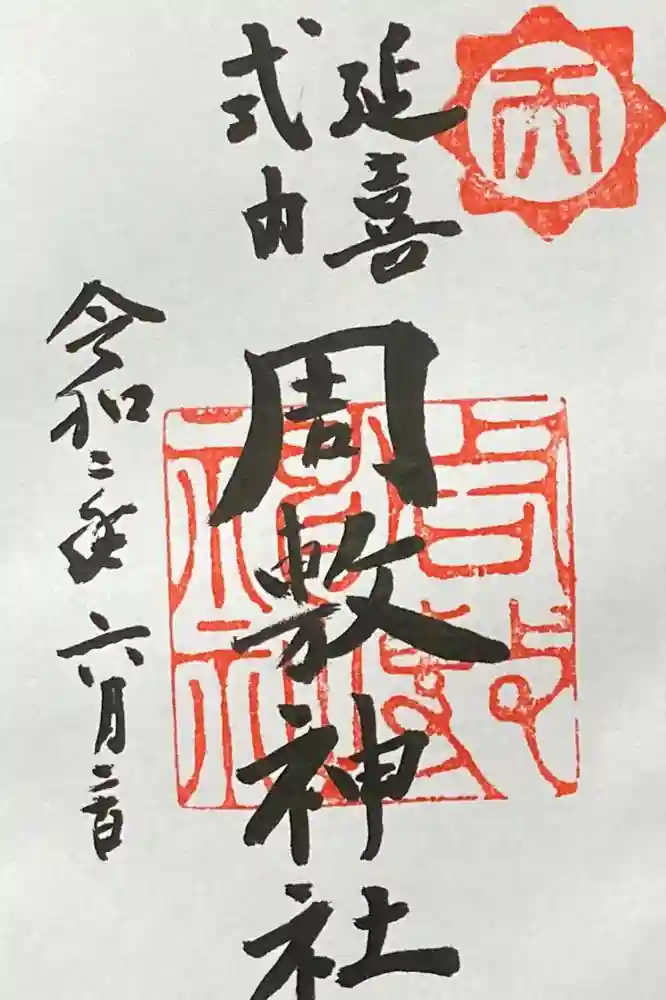 延喜
式内
周敷神社
令和二年六月二十日
天